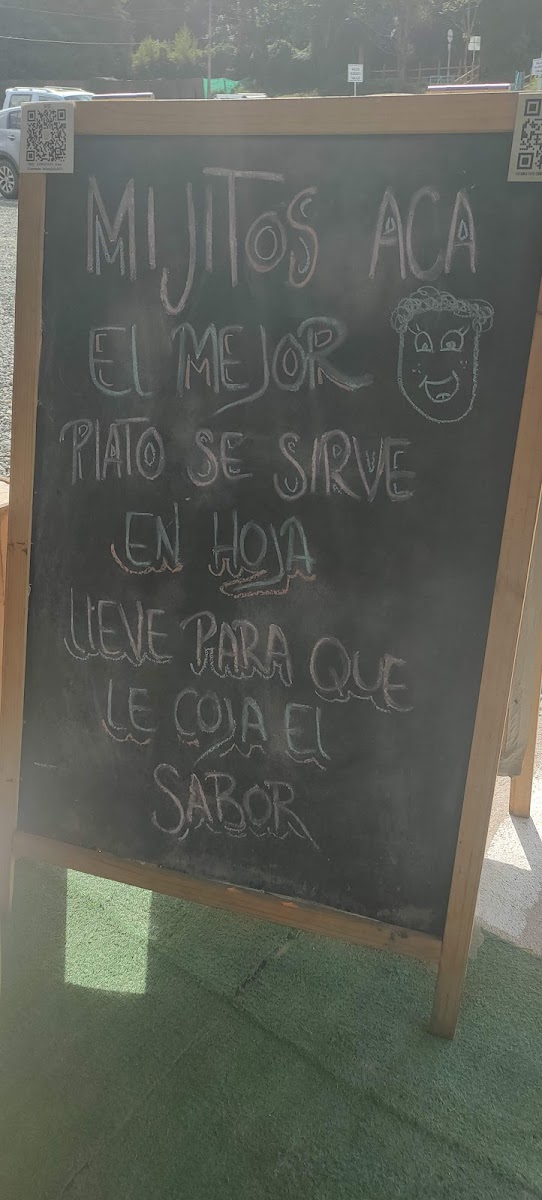 MIJITOS ACA
El MEJOR
PlATO SE SIRVE
EN HOJA
LlEVE PARA QUE
LE COJA El
SABOR